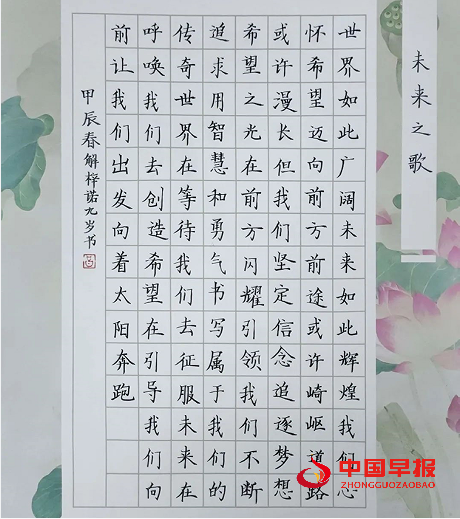 未来之歌
世界如此广阔未来如此辉煌我们心
怀希望迈向前方前途或许崎岖道路
或许漫长但我们坚定信念追逐梦想
希望之光在前方闪耀引领我们不断
追求用智慧和勇气书写属于我们的
传奇世界在等待我们去征服未来在
呼唤我们去创造希望在引导我们向
前让我们出发向着太阳奔跑
甲辰春解梓诺九岁书
中国早报
ZHONGGUOZAOBAO